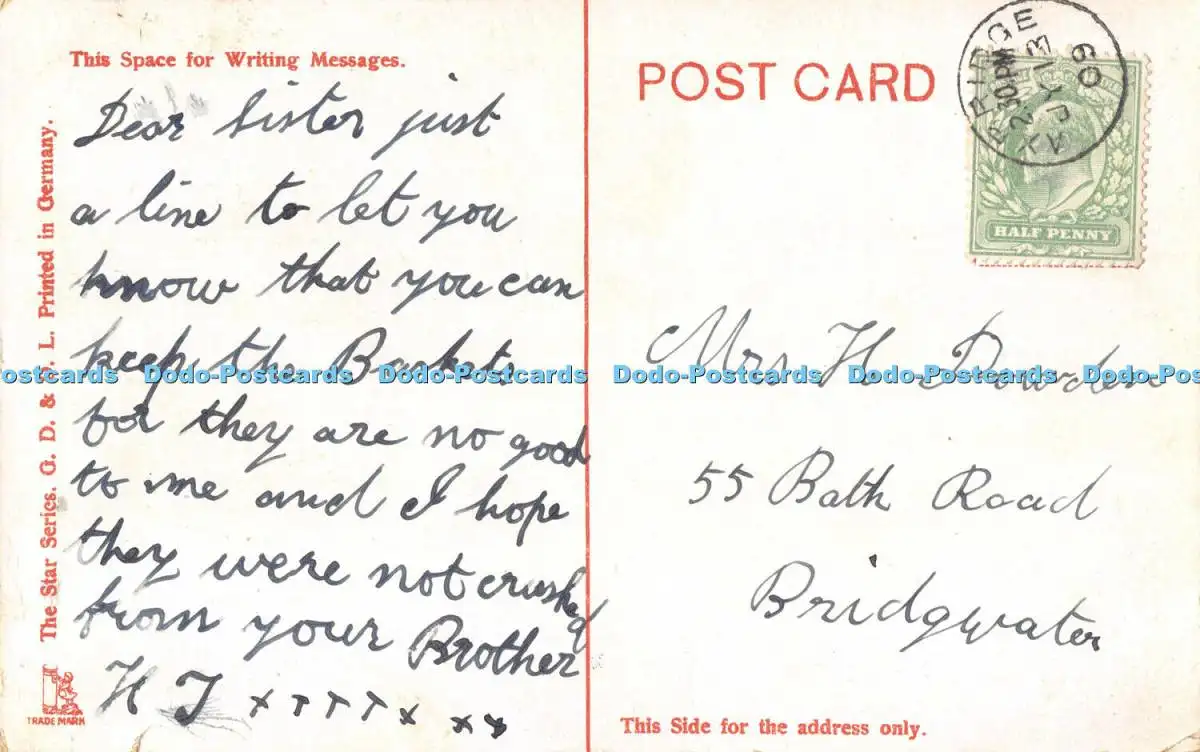 This Space for Writing Messages.
Dear Sister just
a line to let you
know that you can
keep the Baskets
for they are no good
to me and I hope
they were not crushed
from your Brother
H J x T T T x x x
The Star Series. G. D. & D. L. Printed in Germany.
TRADE MARK
POST CARD
2 30 PM
13
09
HALF PENNY
Mrs H Dowden
55 Bath Road
Bridgwater
This Side for the address only.
Dodo-Postcards Dodo-Postcards Dodo-Postcards Dodo-Postcards Dodo-Postcards